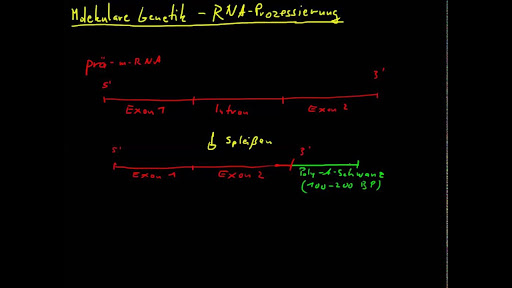 Molekulare Genetik - RNA-Prozessierung
prä-m-RNA
5' 3'
Exon 1 Intron Exon 2
Spleißen
5' 3'
Exon 1 Exon 2 Poly-A-Schwanz
(100-200 BP)